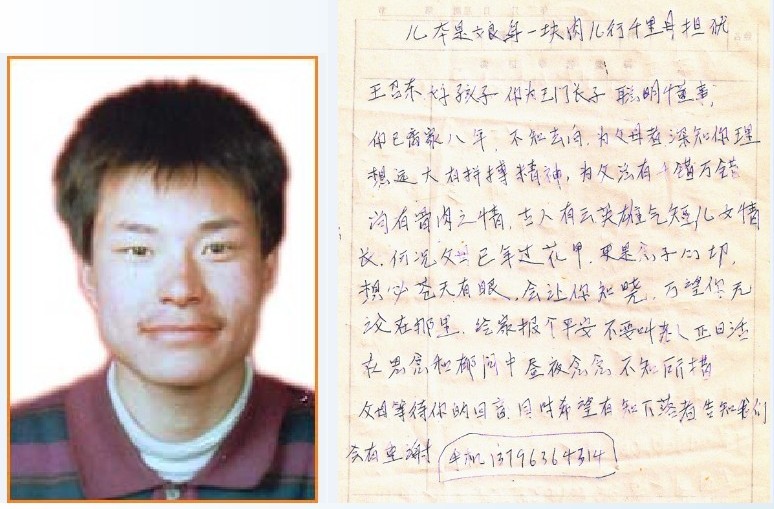 儿本是娘身一块肉儿行千里母担忧
王召东好孩子你为王门长子聪明懂事,
你已离家八年,不知去向,为父母者深知你理
想远大有拼搏精神,为父 有千错万错
有骨肉之情,古人有云英雄气短儿女情
长,何况父母已年过花甲,更是念子心切,
想必苍天有眼,会让你知晓,万望你无
论在那里,给家报个平安不要叫老人正日活
在思念和郁闷中昼夜念念不知所措
父母等待你的回音,同时希望有知下落者告知我们
会有重谢 手机13796364314